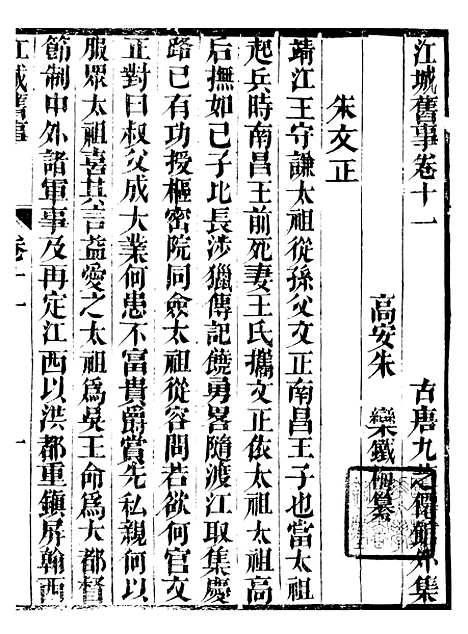 江城舊事卷十一　　古唐九芝僊館外集
高安朱　欒鐵梅纂
朱文正
靖江王守謙太祖從孫父文正南昌王子也當太祖
起兵時南昌王前死妻王氏攜文正依太祖太祖高
后撫如己子比長涉獵傳記饒勇畧隨渡江取集慶
路已有功授樞密院同僉太祖從容問若欲何官文
正對曰叔父成大業何患不富貴爵賞先私親何以
服眾太祖喜其言益愛之太祖爲吳王命爲大都督
節制中外諸軍事及再定江西以洪都重鎭屏翰西
江城舊事　卷十一　一